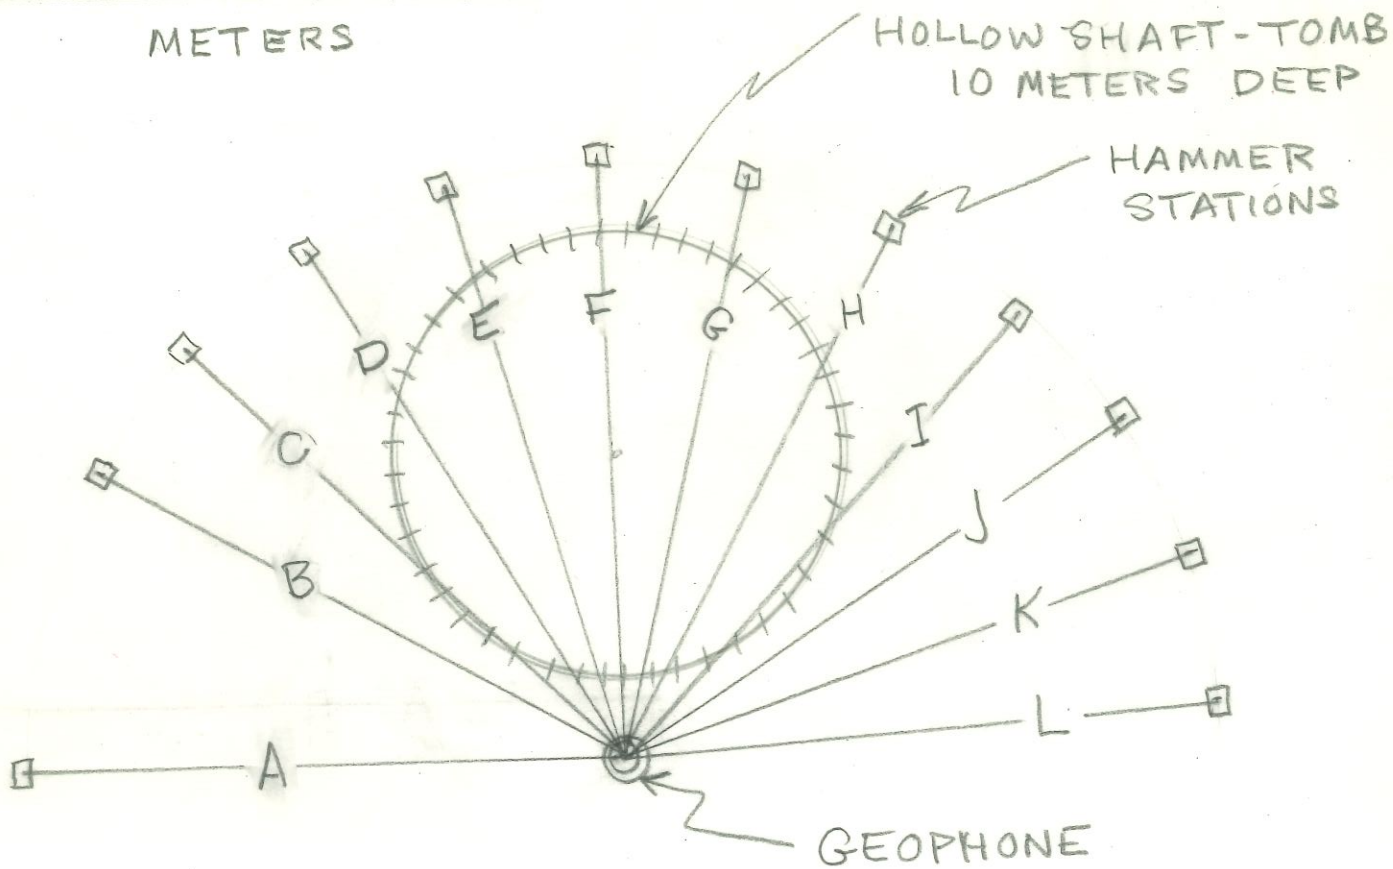 METERS
HOLLOW SHAFT-TOMB
10 METERS DEEP
HAMMER
STATIONS
A
B
C
D
E
F
G
H
I
J
K
L
GEOPHONE